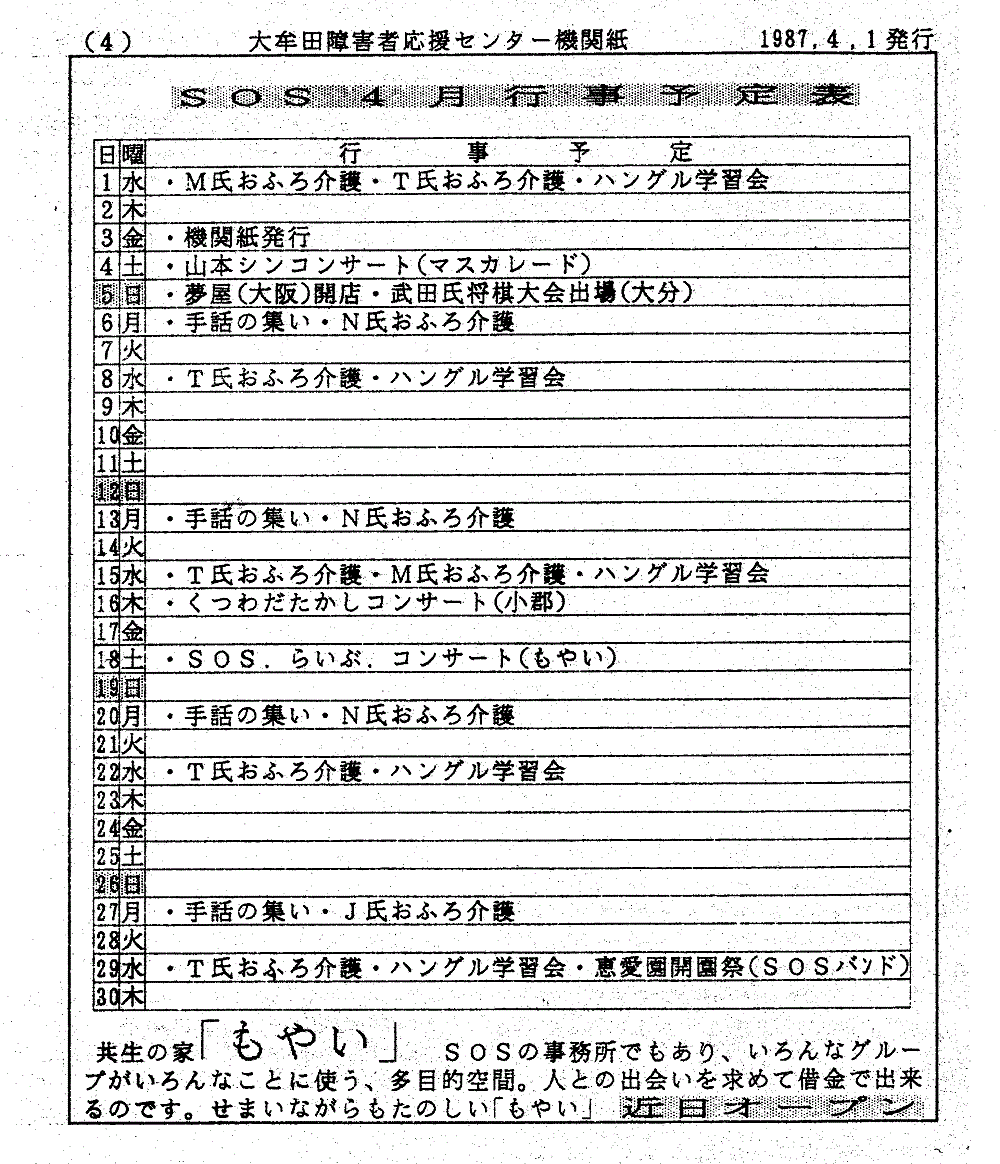 (4) 大牟田障害者応援センター機関紙 1987,4,1発行
SOS4月行事予定表
日 曜 行事予定
1 水 ・M氏おふろ介護・T氏おふろ介護・ハングル学習会
2 木
3 金 ・機関紙発行
4 土 ・山本シンコンサート(マスカレード)
5 日 ・夢屋(大阪)開店・武田氏将棋大会出場(大分)
6 月 ・手話の集い・N氏おふろ介護
7 火
8 水 ・T氏おふろ介護・ハングル学習会
9 木
10 金
11 土
12 日
13 月 ・手話の集い・N氏おふろ介護
14 火
15 水 ・T氏おふろ介護・M氏おふろ介護・ハングル学習会
16 木 ・くつわだたかしコンサート(小郡)
17 金
18 土 ・SOS.らいぶ.コンサート(もやい)
19 日
20 月 ・手話の集い・N氏おふろ介護
21 火
22 水 ・T氏おふろ介護・ハングル学習会
23 木
24 金
25 土
26 日
27 月 ・手話の集い・J氏おふろ介護
28 火
29 水 ・T氏おふろ介護・ハングル学習会・恵愛園開園祭(SOSバンド)
30 木
共生の家「もやい」 SOSの事務所でもあり、いろんなグルー
プがいろんなことに使う、多目的空間。人との出会いを求めて借金で出来
るのです。せまいながらもたのしい「もやい」 近日オープン